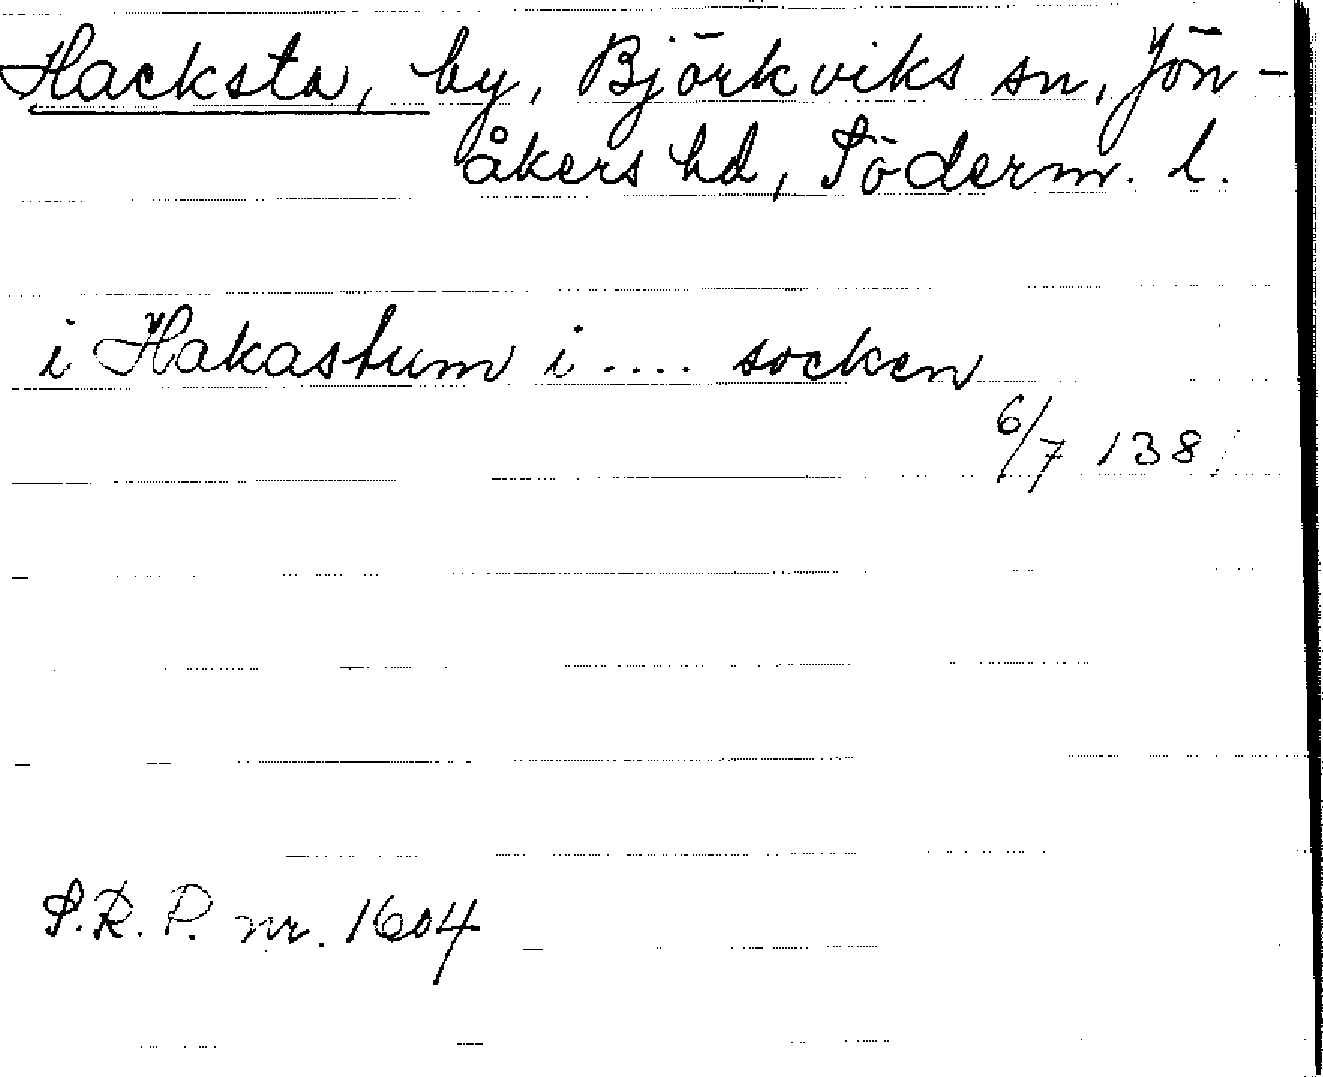 Hacksta, by, Björkviks sn, Jön-
åkers hd, Söderm. l.
i Hakastum i .... socken
6/7 138
S.R.P. nr. 1604